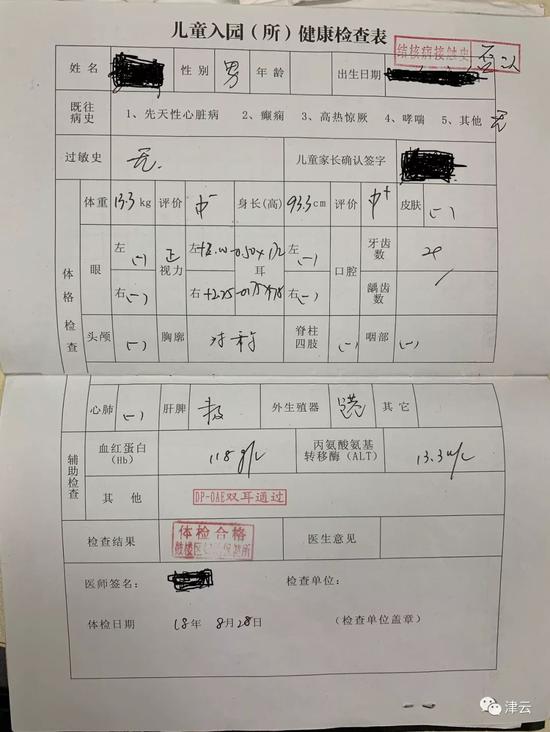 儿童入园（所）健康检查表
结核病接触史 否认
姓名 性别 男 年龄 出生日期
既往病史 1、先天性心脏病 2、癫痫 3、高热惊厥 4、哮喘 5、其他 无
过敏史 无. 儿童家长确认签字
体格检查
体重 13.3kg 评价 中- 身长(高) 93.3cm 评价 中+ 皮肤 (-)
眼 左 (-) 视力 左 耳 左 (-) 口腔 牙齿数
右 (-) 右 +2.25 右 (-) 龋齿数 /
头颅 (-) 胸廓 对称 脊柱四肢 (-) 咽部 (-)
心肺 (-) 肝脾 外生殖器 其它
辅助检查
血红蛋白（Hb） 118g/L 丙氨酸氨基转移酶（ALT） 13.3u/L
其他 DP-OAE双耳通过
检查结果 体检合格 医生意见
医师签名： 检查单位：
体检日期 18年 8月28日 （检查单位盖章）
津云